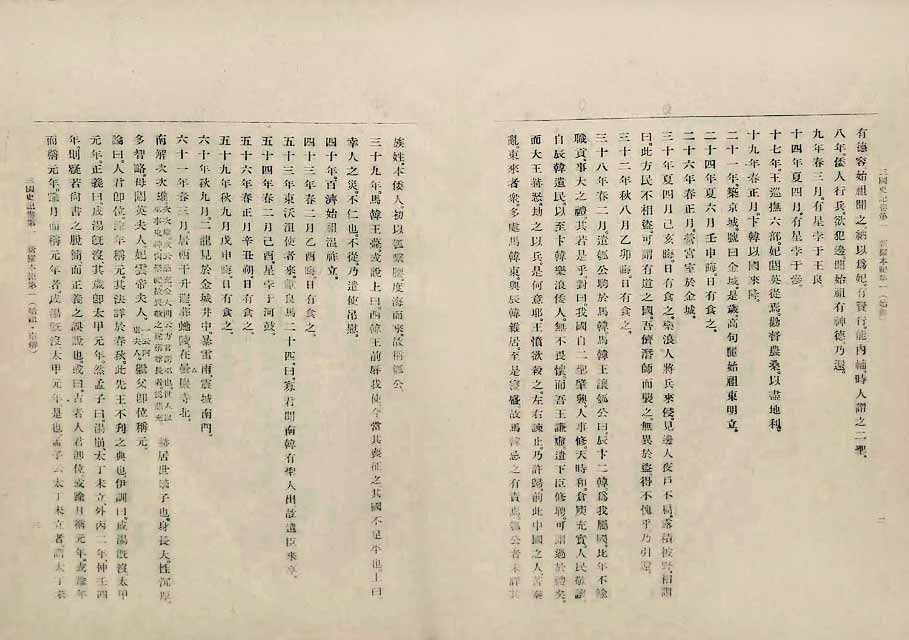 三國史記卷第一 新羅本紀第一（始祖）
有德容始祖聞之納以爲妃有賢行能內輔。時人謂之二聖。
八年倭人行兵欲犯邊聞始祖有神德乃還。
九年春三月有星孛于王良
十四年夏四月。有星孛于參。
十七年王巡撫六部。妃閼英從焉勸督農桑。以盡地利。
十九年春正月。卞韓以國來降。
二十一年。築京城。號曰金城。是歲高句麗始祖東明立。
二十四年夏六月壬申晦。日有食之。
二十六年春正月。營宮室於金城。
三十年夏四月己亥晦。日有食之樂浪人將兵來侵。見邊人夜戶不扃。露積被野。相謂
曰。此方民不相盜。可謂有道之國。吾儕潛師而襲之。無異於盜得不愧乎乃引還。
三十二年秋八月乙卯晦。日有食之。
三十八年春二月遣瓠公聘於馬韓。馬韓王讓瓠公曰辰卞二韓爲我屬國。比年不輸
職貢。事大之禮其若是乎對曰我國自二聖肇興。人事修。天時和。倉庾充實。人民敬讓。
自辰韓遺民。以至卞韓樂浪倭人。無不畏懷而吾王謙虛遣下臣修聘。可謂過於禮矣。
而大王赫怒劫之以兵。是何意耶。王憤欲殺之。左右諫止乃許歸前此中國之人苦秦
亂。東來者衆。多處馬韓東與辰韓雜居。至是寖盛。故馬韓忌之有責焉。瓠公者未詳其
二
族姓。本倭人。初以瓠繫腰度海而來。故稱瓠公。
三十九年。馬韓王薨。或說上曰。西韓王前辱我使。今當其喪征之其國不足平也。上曰。
幸人之災。不仁也。不從。乃遣使弔慰。
四十年。百濟始祖溫祚立。
四十三年春二月乙酉晦。日有食之。
五十三年東沃沮使者來。獻良馬二十匹曰寡君聞南韓有聖人出故遣臣來享。
五十四年春二月己酉星。孛于河鼓。
五十六年春正月辛丑朔。日有食之。
五十九年秋九月戊申晦。日有食之。
六十年秋九月。二龍見於金城井中。暴雷雨。震城南門。
六十一年春三月。居西干升遐。葬虵陵。在曇巖寺北。
南解次次雄立 赫居世嫡子也。身長大。性沉厚。
多智略。母閼英夫人。妃雲帝夫人。一云阿婁夫人。繼父卽位稱元。
論曰。人君卽位。踰年稱元。其法詳於春秋。此先王不刊之典也。伊訓曰成湯旣沒。太甲
元年。正義曰成湯旣沒其歲卽太甲元年。然孟子曰湯崩太丁未立。外丙二年。仲壬四
年。則疑若尙書之脫簡而正義之誤說也。或曰。古者人君卽位或踰月稱元年。或踰年
而稱元年。踰月而稱元年者成湯旣沒太甲元年是也。孟子云太丁未立者。謂太丁未
三國史記卷第一 新羅本紀第一（始祖·南解）
三